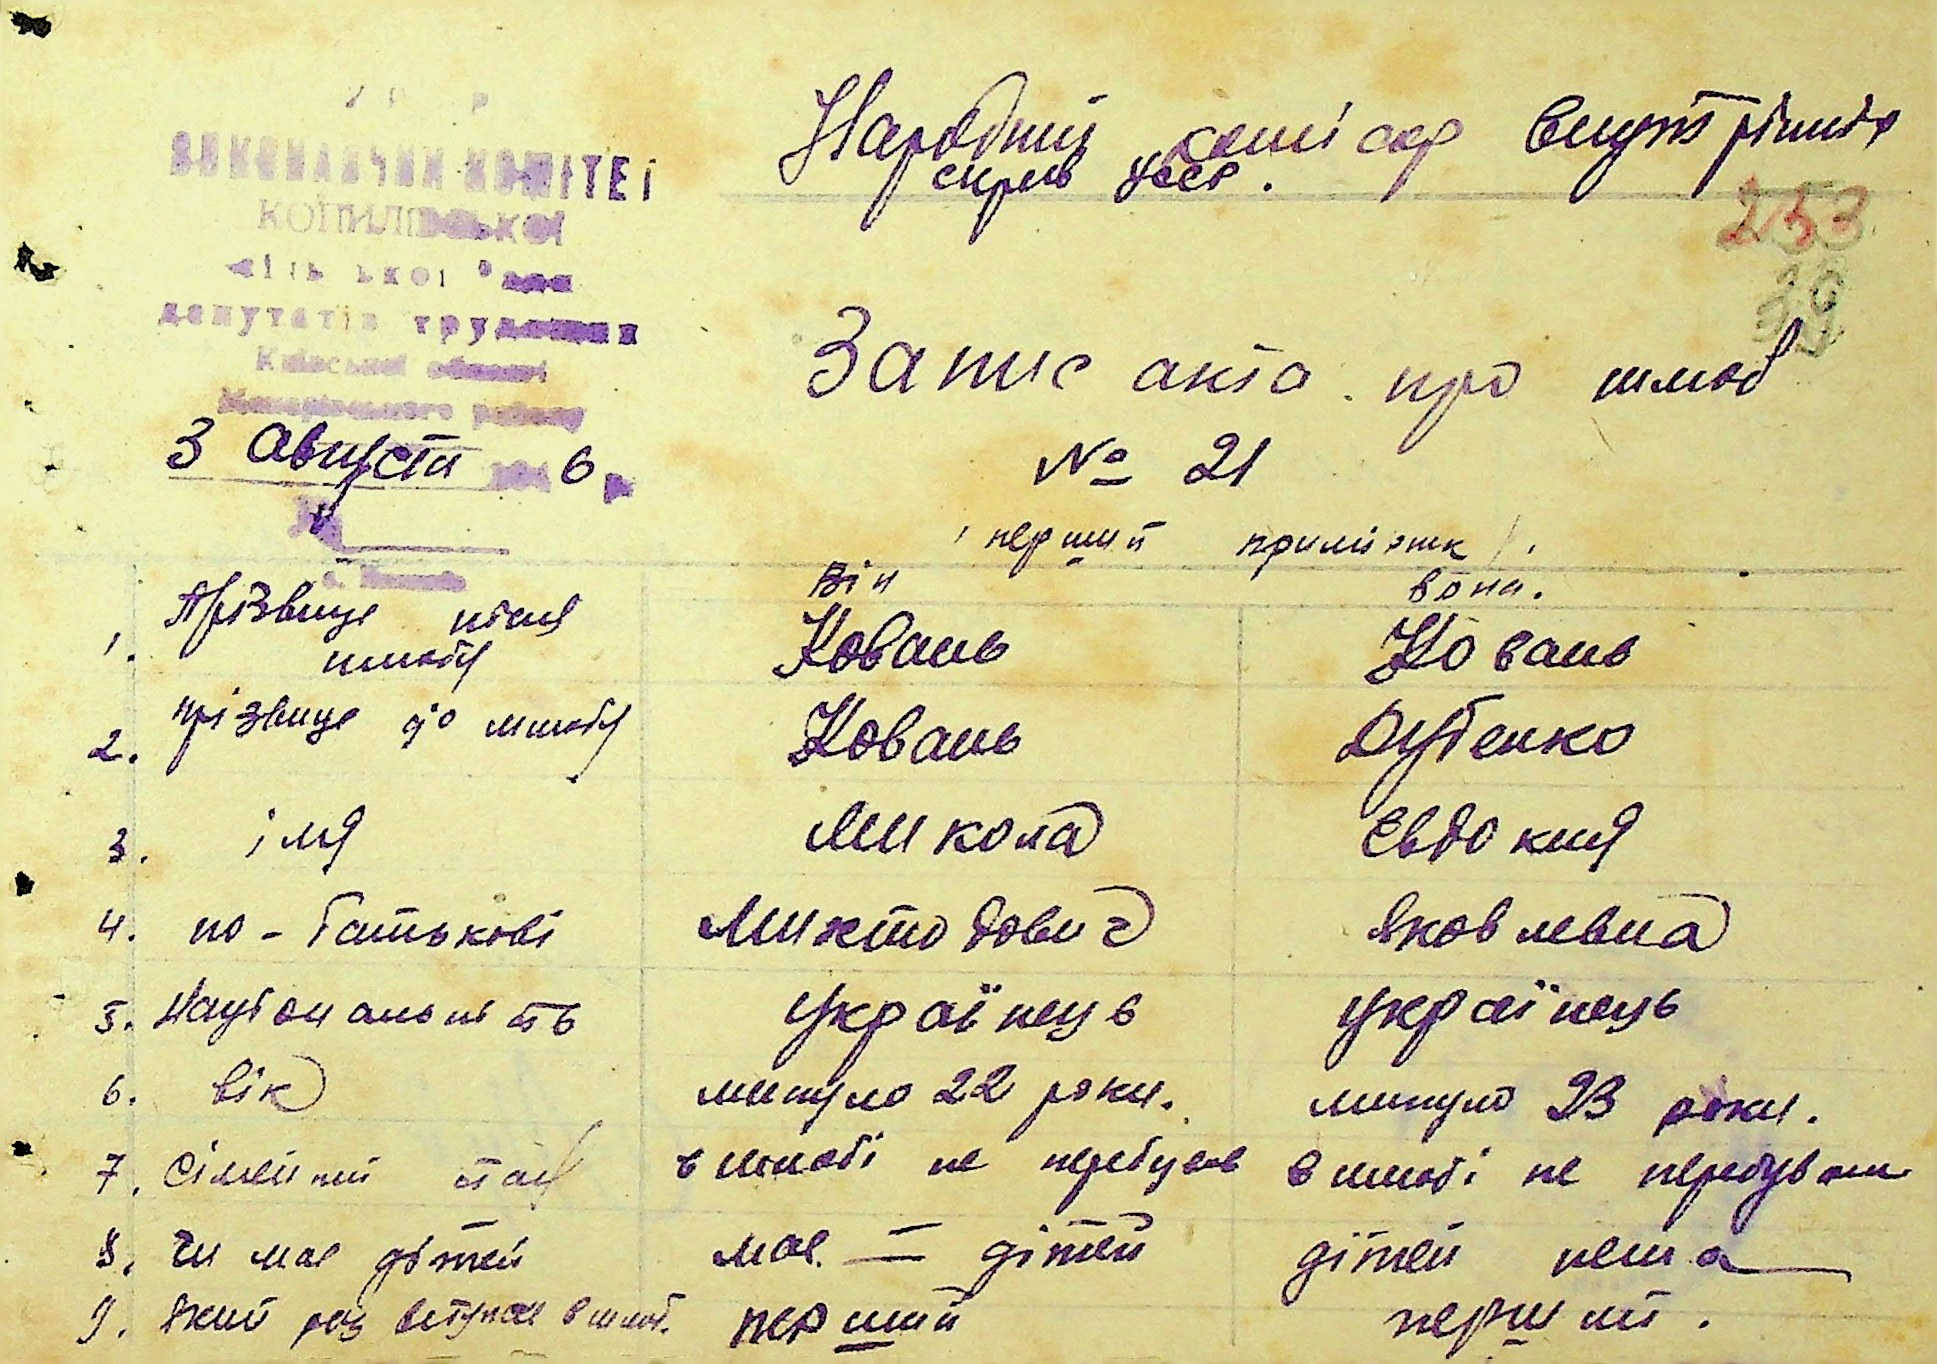 ВИКОНАВЧИЙ КОМІТЕТ
КОПИЛІВСЬКОЇ
сільської Ради
депутатів трудящих
Київської області
Макарівського району
3 Августа 6
Народний комісар внутрішніх
справ УССР.
253
39
Запис акта про шлюб
№ 21
/ перший примірник /.
він
вона.
1. Прізвище після шлюбу
Коваль
Коваль
2. прізвище до шлюбу
Коваль
Дубенко
3. імя
Микола
Євдокия
4. по-батькові
Яковлевна
5. Національність
українець
українець
6. вік
минуло 22 роки.
минуло 23 роки.
7. сімейний стан
в шлюбі не перебував
в шлюбі не перебувала
8. чи має дітей
має = дітей
дітей нема
9. який раз вступає в шлюб.
перший
перший.